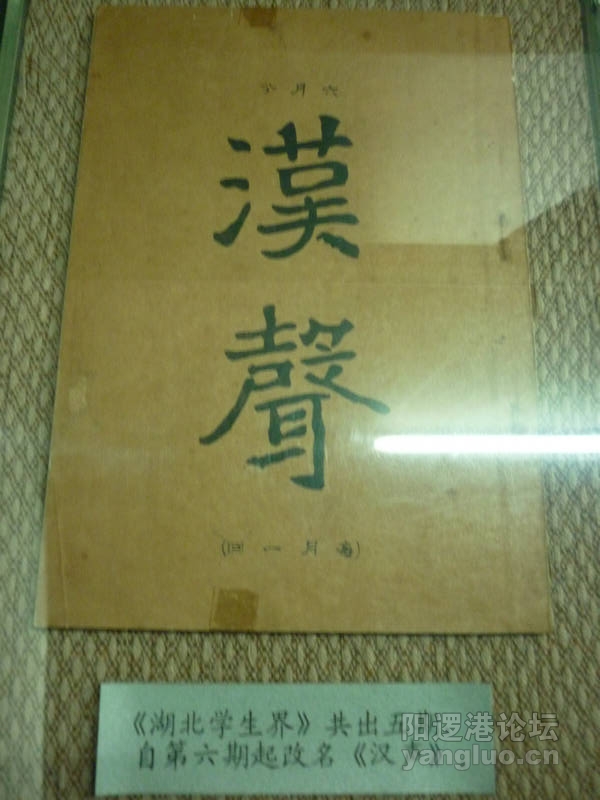 六月分
漢
聲
(每月一回)
《湖北学生界》共出五期
自第六期起改名《汉声》
阳逻港论坛
yangluo.cn